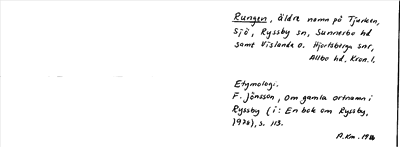 Rungen, äldre namn på Tjurken,
sjö, Ryssby sn, Sunnerbo hd
samt Vislanda o. Hjortsberga snr,
Allbo hd, Kron. l.
Etymologi.
F. Jönsson, Om gamla ortnamn i
Ryssby (i: En bok om Ryssby,
1978), s. 113.
A.Km. 1986